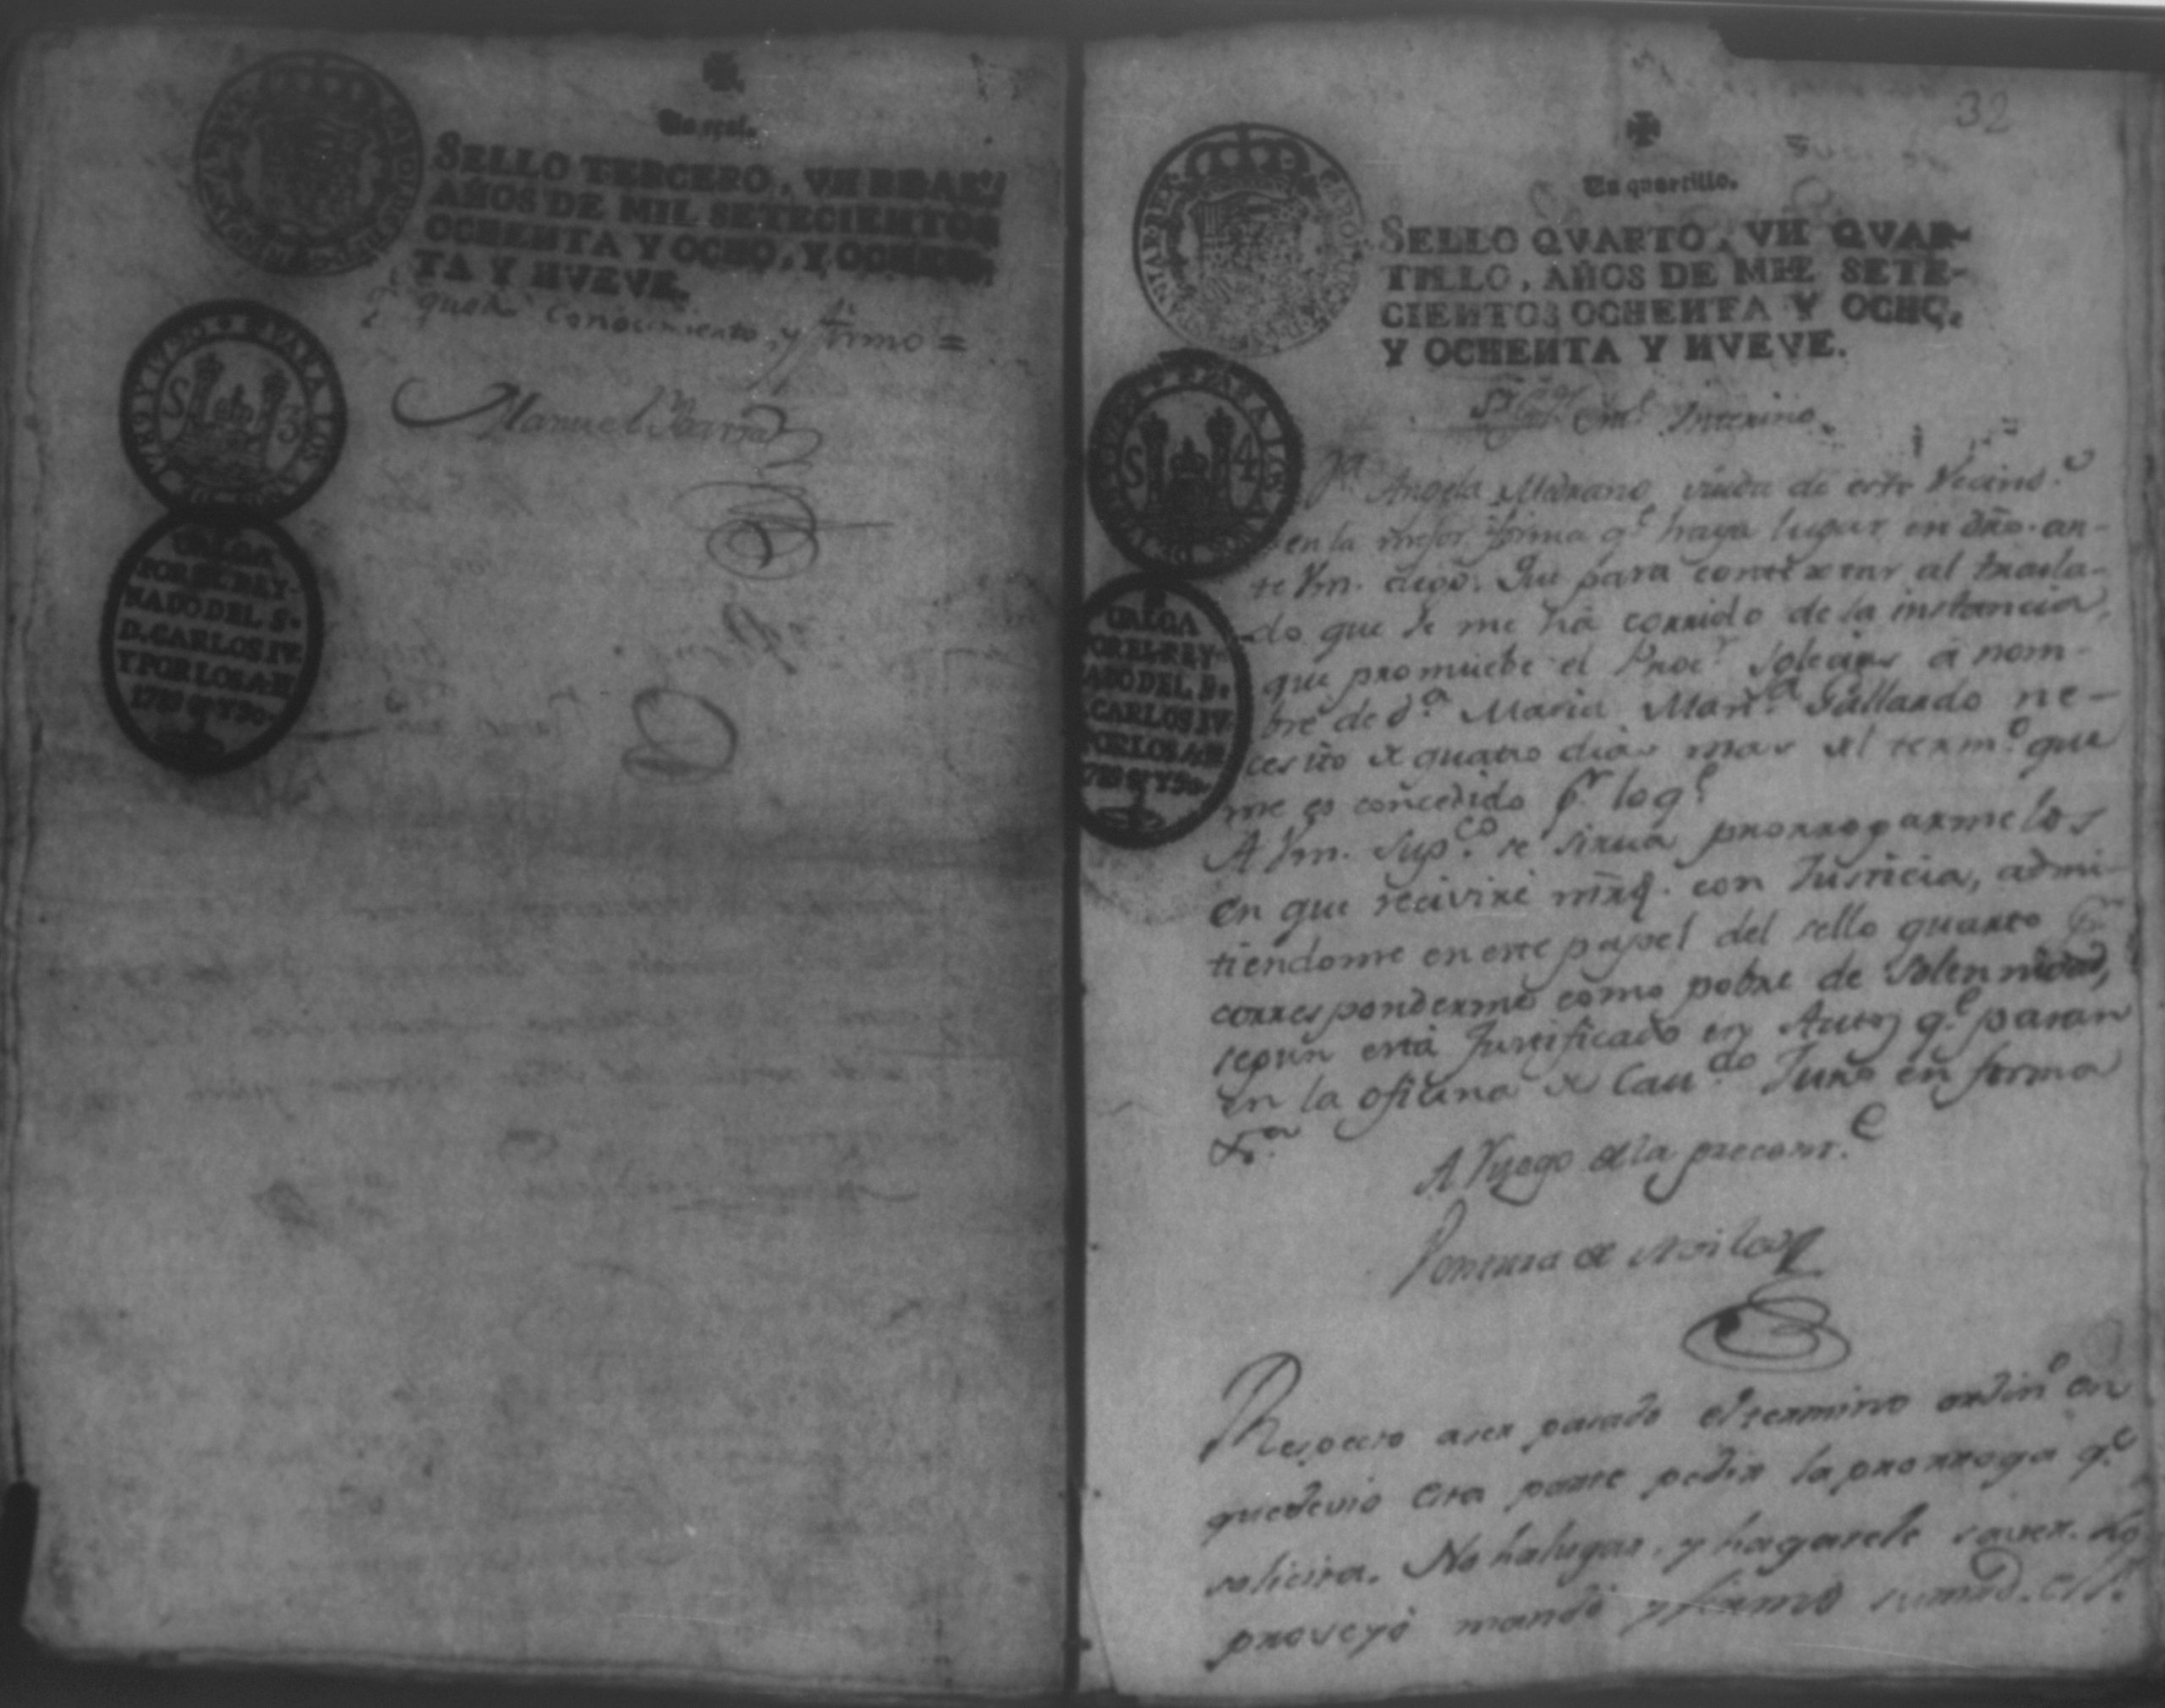 Un real.
SELLO TERCERO, VN REAL,
AÑOS DE MIL SETECIENTOS
OCHENTA Y OCHO, Y OCHEN-
TA Y NVEVE.
conocimiento, y firmo =
Manuel
S 3
VALGA
POR EL REY-
NADO DEL S.
D. CARLOS IV.
Y POR LOS A. D.
32
Un quartillo.
SELLO QVARTO, VN QVAR-
TILLO, AÑOS DE MIL SETE-
CIENTOS OCHENTA Y OCHO,
Y OCHENTA Y NVEVE.
Interino
S 4
VALGA
POR EL REY-
NADO DEL S.
CARLOS IV.
POR LOS A. D.
Angela Medrano viuda de este Vecind.o
en la mejor forma q.e haya lugar en dño. an-
te Vm. digo: Que para contextar al trasla-
do que se me há corrido de la instancia,
que promuebe el Proc.r Iglecias á nom-
bre de d.a Maria Man.a Gallardo ne-
cesito de quatro dias mas del term.o que
me es concedido p.r lo q.e
A Vm. Sup.co se sirva prorrogarmelos
en que reciviré mrd. con Justicia, admi-
tiendome en este papel del sello quarto p.r
corresponderme como pobre de solemnidad,
segun está Justificado en Autos q.e paran
en la oficina de Cau.do Juro en forma
&.a
A Ruego de la precont.e
Respecto aser pasado el termino ordin.o en
que devio esta parte pedir la prorroga q.e
solicita. No ha lugar, y hagasele saver. Lo
proveyó mandó y firmó su mrd. el S.r